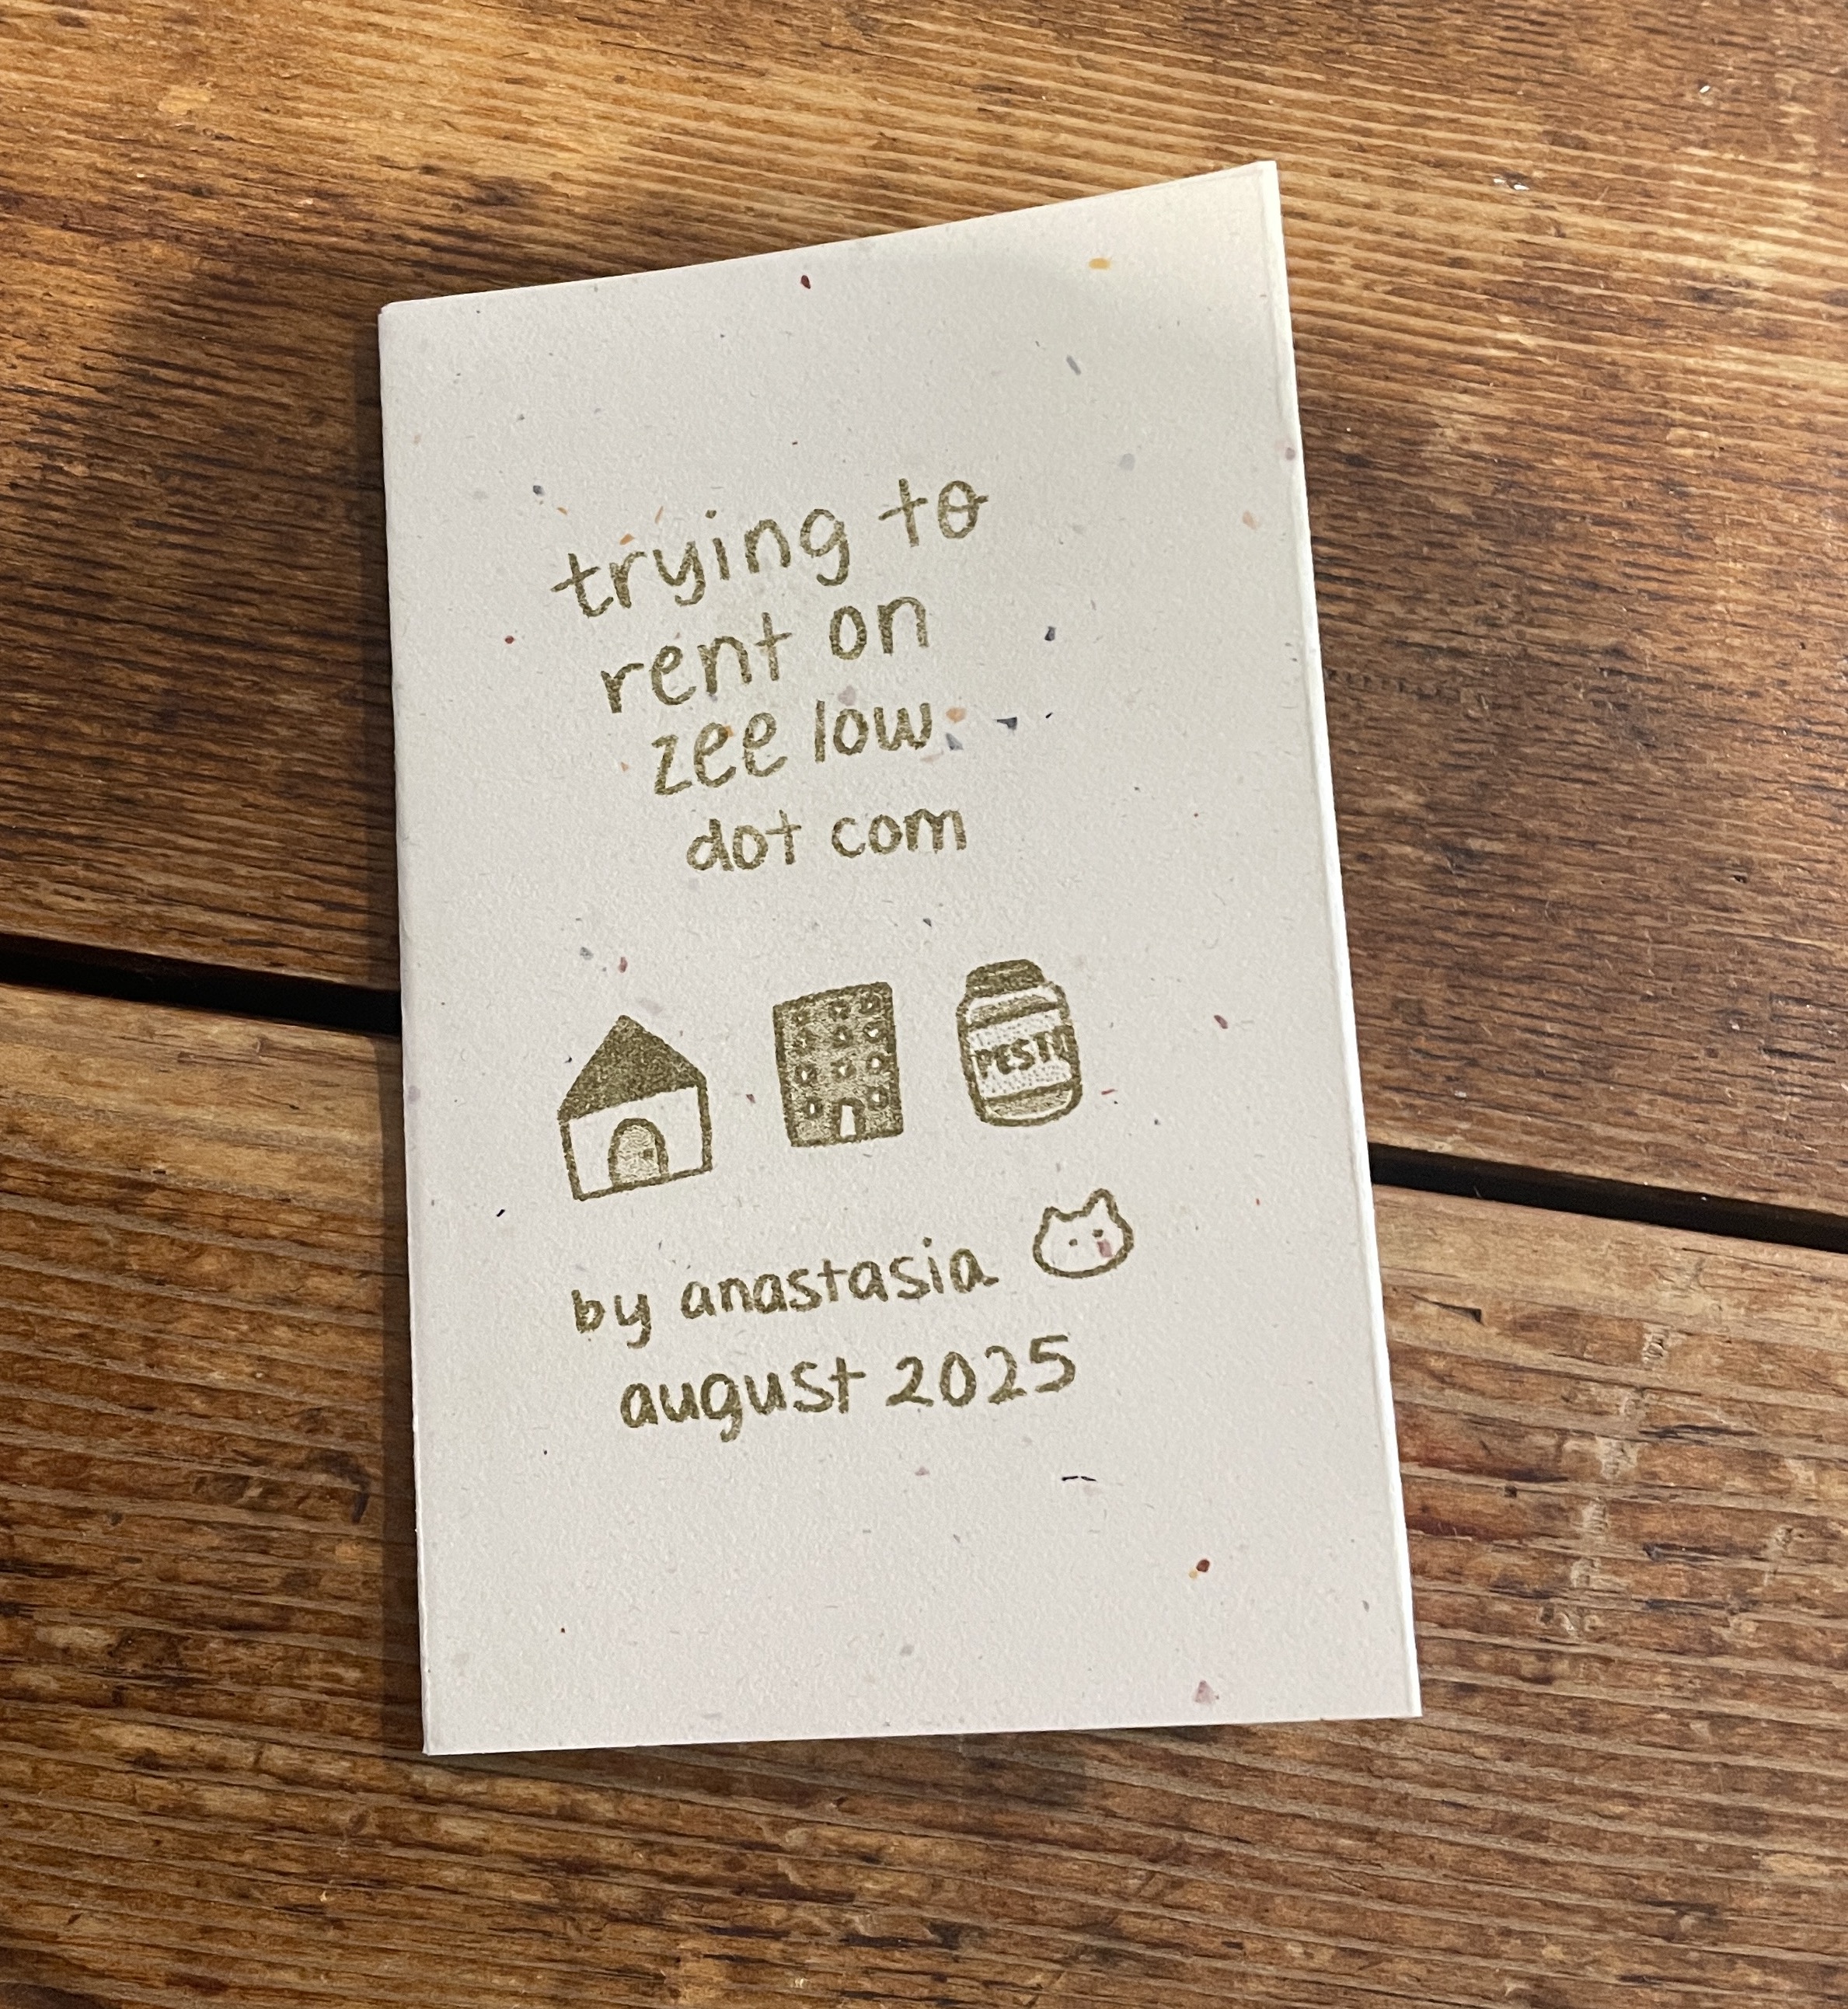 trying to
rent on
zee low
dot com
PESTO
by anastasia
august 2025